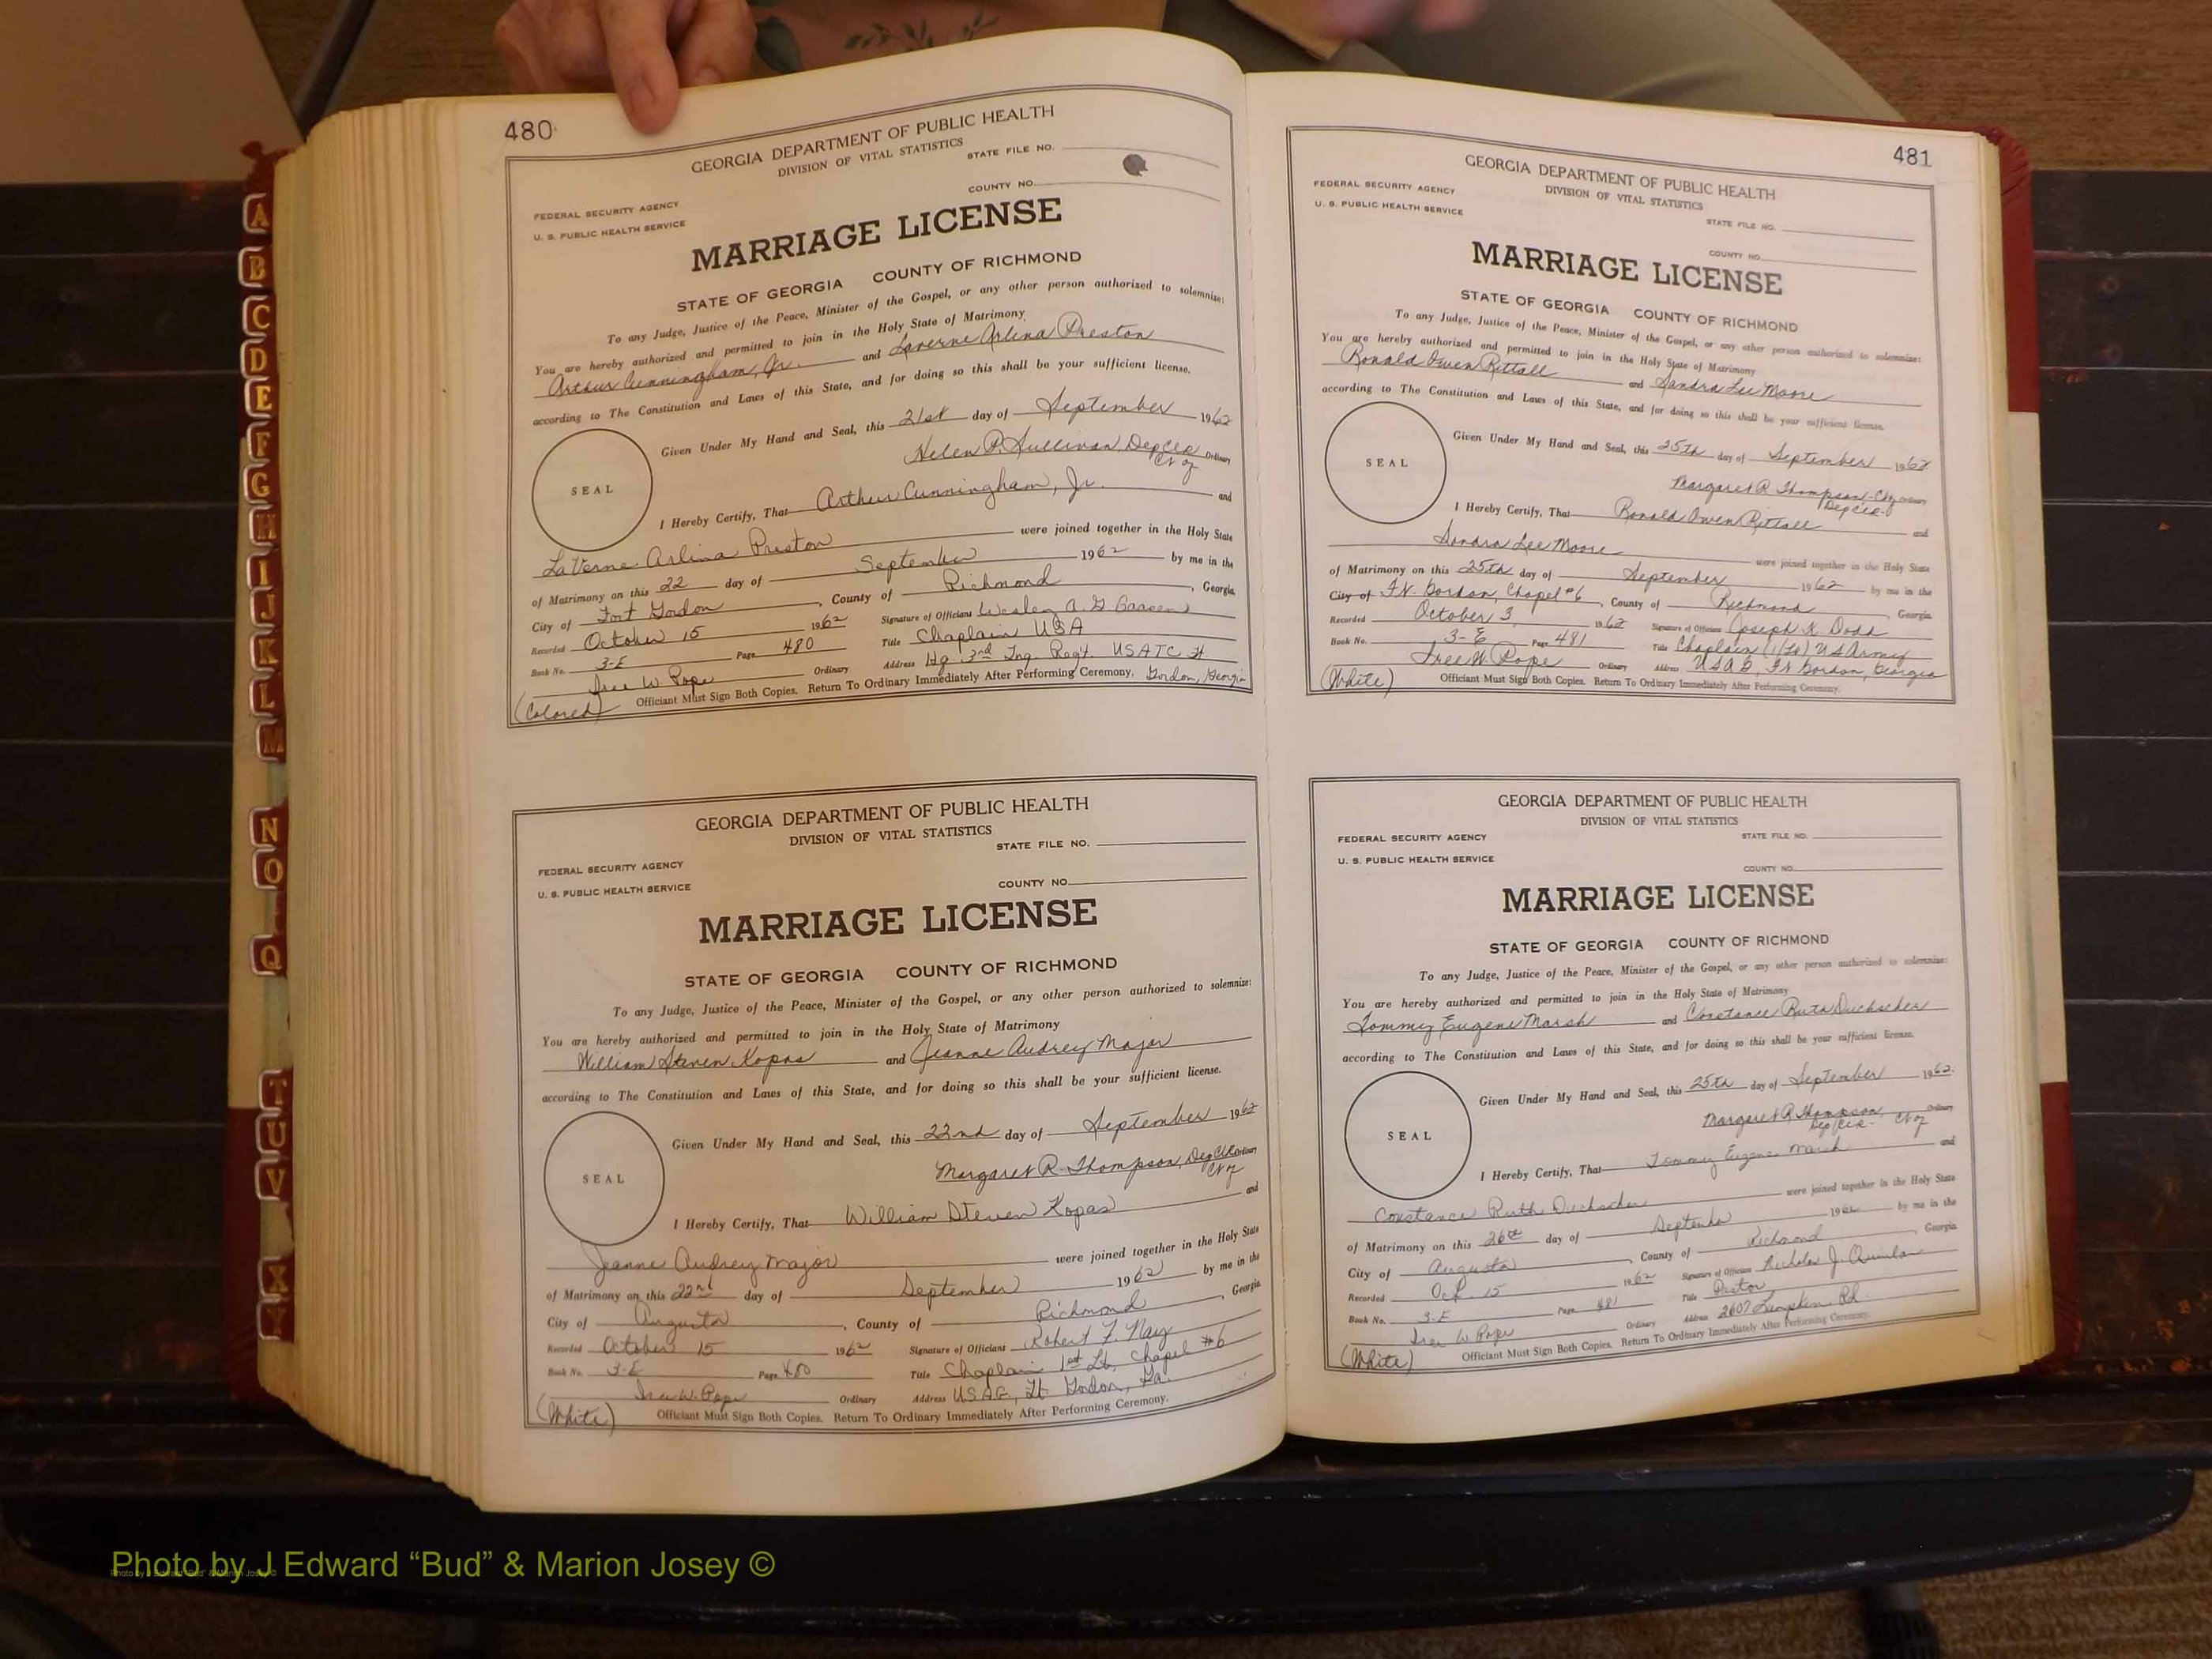 A
B
C
D
E
F
G
H
I
J
K
L
M
N
O
Q
T
U
V
X
Y
480
GEORGIA DEPARTMENT OF PUBLIC HEALTH
DIVISION OF VITAL STATISTICS
STATE FILE NO.
COUNTY NO.
FEDERAL SECURITY AGENCY
U. S. PUBLIC HEALTH SERVICE
MARRIAGE LICENSE
STATE OF GEORGIA COUNTY OF RICHMOND
To any Judge, Justice of the Peace, Minister of the Gospel, or any other person authorized to solemnize:
You are hereby authorized and permitted to join in the Holy State of Matrimony
Arthur Cunningham, Jr. and Laverne Arlina Preston
according to The Constitution and Laws of this State, and for doing so this shall be your sufficient license.
Given Under My Hand and Seal, this 21st day of September 1962
Helen P. Sullivan, Dep Clk Ordinary
Ct of
SEAL
I Hereby Certify, That Arthur Cunningham, Jr. and
LaVerne Arlina Preston were joined together in the Holy State
of Matrimony on this 22 day of September 1962 by me in the
City of Fort Gordon, County of Richmond, Georgia
Recorded October 15 1962 Signature of Officiant Wesley A. G.
Book No. 3-E Page 480 Title Chaplain USA
Iree W. Pope Ordinary Address Hq. 3rd Tng. Regt. USATC Ft
Gordon, Georgia
(Colored) Officiant Must Sign Both Copies. Return To Ordinary Immediately After Performing Ceremony.
GEORGIA DEPARTMENT OF PUBLIC HEALTH
DIVISION OF VITAL STATISTICS
STATE FILE NO.
FEDERAL SECURITY AGENCY
COUNTY NO.
U. S. PUBLIC HEALTH SERVICE
MARRIAGE LICENSE
STATE OF GEORGIA COUNTY OF RICHMOND
To any Judge, Justice of the Peace, Minister of the Gospel, or any other person authorized to solemnize:
You are hereby authorized and permitted to join in the Holy State of Matrimony
William Steven Kopas and Jeanne Audrey Major
according to The Constitution and Laws of this State, and for doing so this shall be your sufficient license.
Given Under My Hand and Seal, this 22nd day of September 1962
Margaret R. Thompson, Dep Clk Ordinary
Ct of
SEAL
I Hereby Certify, That William Steven Kopas and
Jeanne Audrey Major were joined together in the Holy State
of Matrimony on this 22nd day of September 1962 by me in the
City of Augusta, County of Richmond, Georgia
Recorded October 15 1962 Signature of Officiant Robert F. Nay
Book No. 3-E Page 480 Title Chaplain 1st Lt, Chapel #6
Iree W. Pope Ordinary Address USAG, Ft Gordon, Ga.
(White) Officiant Must Sign Both Copies. Return To Ordinary Immediately After Performing Ceremony.
481
GEORGIA DEPARTMENT OF PUBLIC HEALTH
DIVISION OF VITAL STATISTICS
FEDERAL SECURITY AGENCY
U. S. PUBLIC HEALTH SERVICE
STATE FILE NO.
COUNTY NO.
MARRIAGE LICENSE
STATE OF GEORGIA COUNTY OF RICHMOND
To any Judge, Justice of the Peace, Minister of the Gospel, or any other person authorized to solemnize:
You are hereby authorized and permitted to join in the Holy State of Matrimony
Ronald Owen Rittall and Sandra Lee Moore
according to The Constitution and Laws of this State, and for doing so this shall be your sufficient license.
Given Under My Hand and Seal, this 25th day of September 1962
Margaret R. Thompson - Ct of Ordinary
Dep Clk
SEAL
I Hereby Certify, That Ronald Owen Rittall and
Sandra Lee Moore were joined together in the Holy State
of Matrimony on this 25th day of September 1962 by me in the
City of Ft. Gordon, Chapel #6, County of Richmond Georgia
Recorded October 3, 1962 Signature of Officiant Joseph K. Dodd
Book No. 3-E Page 481 Title Chaplain (1/Lt) US Army
Iree W. Pope Ordinary Address USAG, Ft Gordon, Georgia
(White) Officiant Must Sign Both Copies. Return To Ordinary Immediately After Performing Ceremony.
GEORGIA DEPARTMENT OF PUBLIC HEALTH
DIVISION OF VITAL STATISTICS
FEDERAL SECURITY AGENCY
STATE FILE NO.
U. S. PUBLIC HEALTH SERVICE
COUNTY NO.
MARRIAGE LICENSE
STATE OF GEORGIA COUNTY OF RICHMOND
To any Judge, Justice of the Peace, Minister of the Gospel, or any other person authorized to solemnize:
You are hereby authorized and permitted to join in the Holy State of Matrimony
Tommy Eugene Marsh and Constance Ruth Duchscher
according to The Constitution and Laws of this State, and for doing so this shall be your sufficient license.
Given Under My Hand and Seal, this 25th day of September 1962
Margaret R. Thompson, Ordinary
Dep Clk - Ct of
SEAL
I Hereby Certify, That Tommy Eugene Marsh and
Constance Ruth Duchscher were joined together in the Holy State
of Matrimony on this 26th day of September 1962 by me in the
City of Augusta, County of Richmond, Georgia
Recorded Oct. 15 1962 Signature of Officiant Nicholas J. Quinlan
Book No. 3-E Page 481 Title Pastor
Iree W. Pope Ordinary Address 2607 Lumpkin Rd.
(White) Officiant Must Sign Both Copies. Return To Ordinary Immediately After Performing Ceremony.
Photo by J Edward “Bud” & Marion Josey ©
Photo by J Edward “Bud” & Marion Josey ©